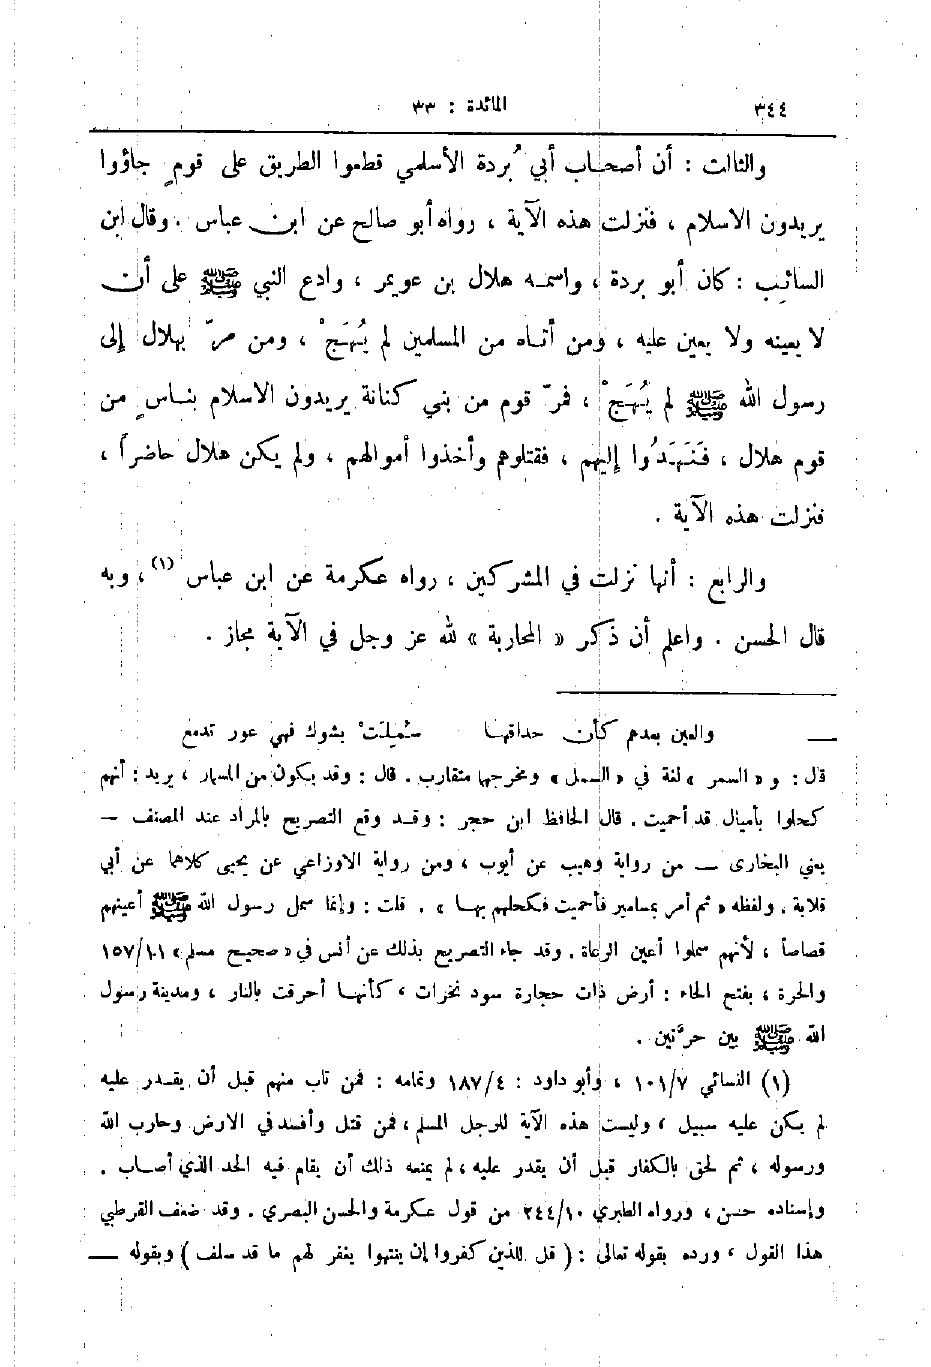 ٣٤٤ المائدة : ٣٣
والثالث : أن أصحاب أبي بُردة الأسلمي قطعوا الطريق على قومٍ جاؤوا
يريدون الاسلام ، فنزلت هذه الآية ، رواه أبو صالح عن ابن عباس . وقال ابن
السائب : كان أبو بردة ، واسمه هلال بن عويمر ، وادع النبي ﷺ على أن
لا يعينه ولا يعين عليه ، ومن أتاه من المسلمين لم يُهَجْ ، ومن مرّ بهلال إلى
رسول الله ﷺ لم يُهَجْ ، فمرّ قوم من بني كنانة يريدون الاسلام بناسٍ من
قوم هلال ، فَنَهَدُوا إليهم ، فقتلوهم وأخذوا أموالهم ، ولم يكن هلال حاضراً ،
فنزلت هذه الآية .
والرابع : أنها نزلت في المشركين ، رواه عكرمة عن ابن عباس (١) ، وبه
قال الحسن . واعلم أن ذكر « المحاربة » لله عز وجل في الآية مجاز .
— والعين بعدم كأن حداقها سُمِلَتْ بشوك فهي عور تدمع
قال : و « السمر » لغة في « السمل » ومخرجها متقارب . قال : وقد يكون من المسمار ، يريد : أنهم
كحلوا بأميال قد أحميت . قال الحافظ ابن حجر : وقد وقع التصريح بالمراد عند المصنف —
يعني البخارى — من رواية وهيب عن أيوب ، ومن رواية الاوزاعي عن يحيى كلاهما عن أبي
قلابة . ولفظه « ثم أمر بمسامير فأحميت فكحلهم بها » . قلت : وإنما سمل رسول الله ﷺ أعينهم
قصاصاً ، لأنهم سملوا أعين الرعاة . وقد جاء التصريح بذلك عن أنس في « صحيح مسلم » ١٥٧/١١
والحرة ، بفتح الحاء : أرض ذات حجارة سود نخرات ، كأنها أحرقت بالنار ، ومدينة رسول
الله ﷺ بين حرَّتين .
(١) النسائي ١٠١/٧ ، وأبو داود : ١٨٧/٤ وتمامه : فمن تاب منهم قبل أن يقدر عليه
لم يكن عليه سبيل ، وليست هذه الآية للرجل المسلم ، فمن قتل وأفسد في الارض وحارب الله
ورسوله ، ثم لحق بالكفار قبل أن يقدر عليه ، لم يمنعه ذلك أن يقام فيه الحد الذي أصاب .
وإسناده حسن ، ورواه الطبري ٢٤٤/١٠ من قول عكرمة والحسن البصري . وقد ضعف القرطبي
هذا القول ، ورده بقوله تعالى : ( قل للذين كفروا إن ينتهوا يغفر لهم ما قد سلف ) وبقوله —